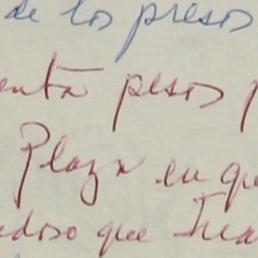 de los presos
enta pesos p
Plaza en qu
edoso que